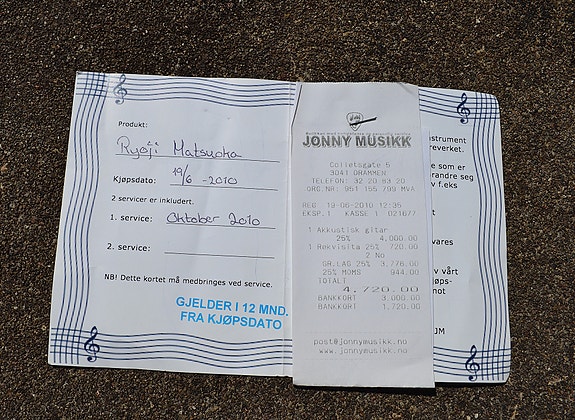 Produkt:
Ryoji Matsuoka
Kjøpsdato: 19/6 -2010
2 servicer er inkludert.
1. service: Oktober 2010
2. service:
NB! Dette kortet må medbringes ved service.
GJELDER I 12 MND.
FRA KJØPSDATO
JONNY MUSIKK
Colletsgate 5
3041 DRAMMEN
TELEFON: 32 20 83 20
ORG.NR: 951 155 799 MVA
REG 19-06-2010 12:35
EKSP.1 KASSE 1 021077
1 Akkustisk gitar
25% 4,000.00
1 Rekvisita 25% 720.00
2 No
GR.LAG 25% 3,776.00
25% MOMS 944.00
TOTALT
4,720.00
BANKKORT 3,000.00
BANKKORT 1,720.00
post@jonnymusikk.no
www.jonnymusikk.no
instrument
reverket.
e som er
randre seg
v f.eks
vares
v vårt
jøps-
not
JM